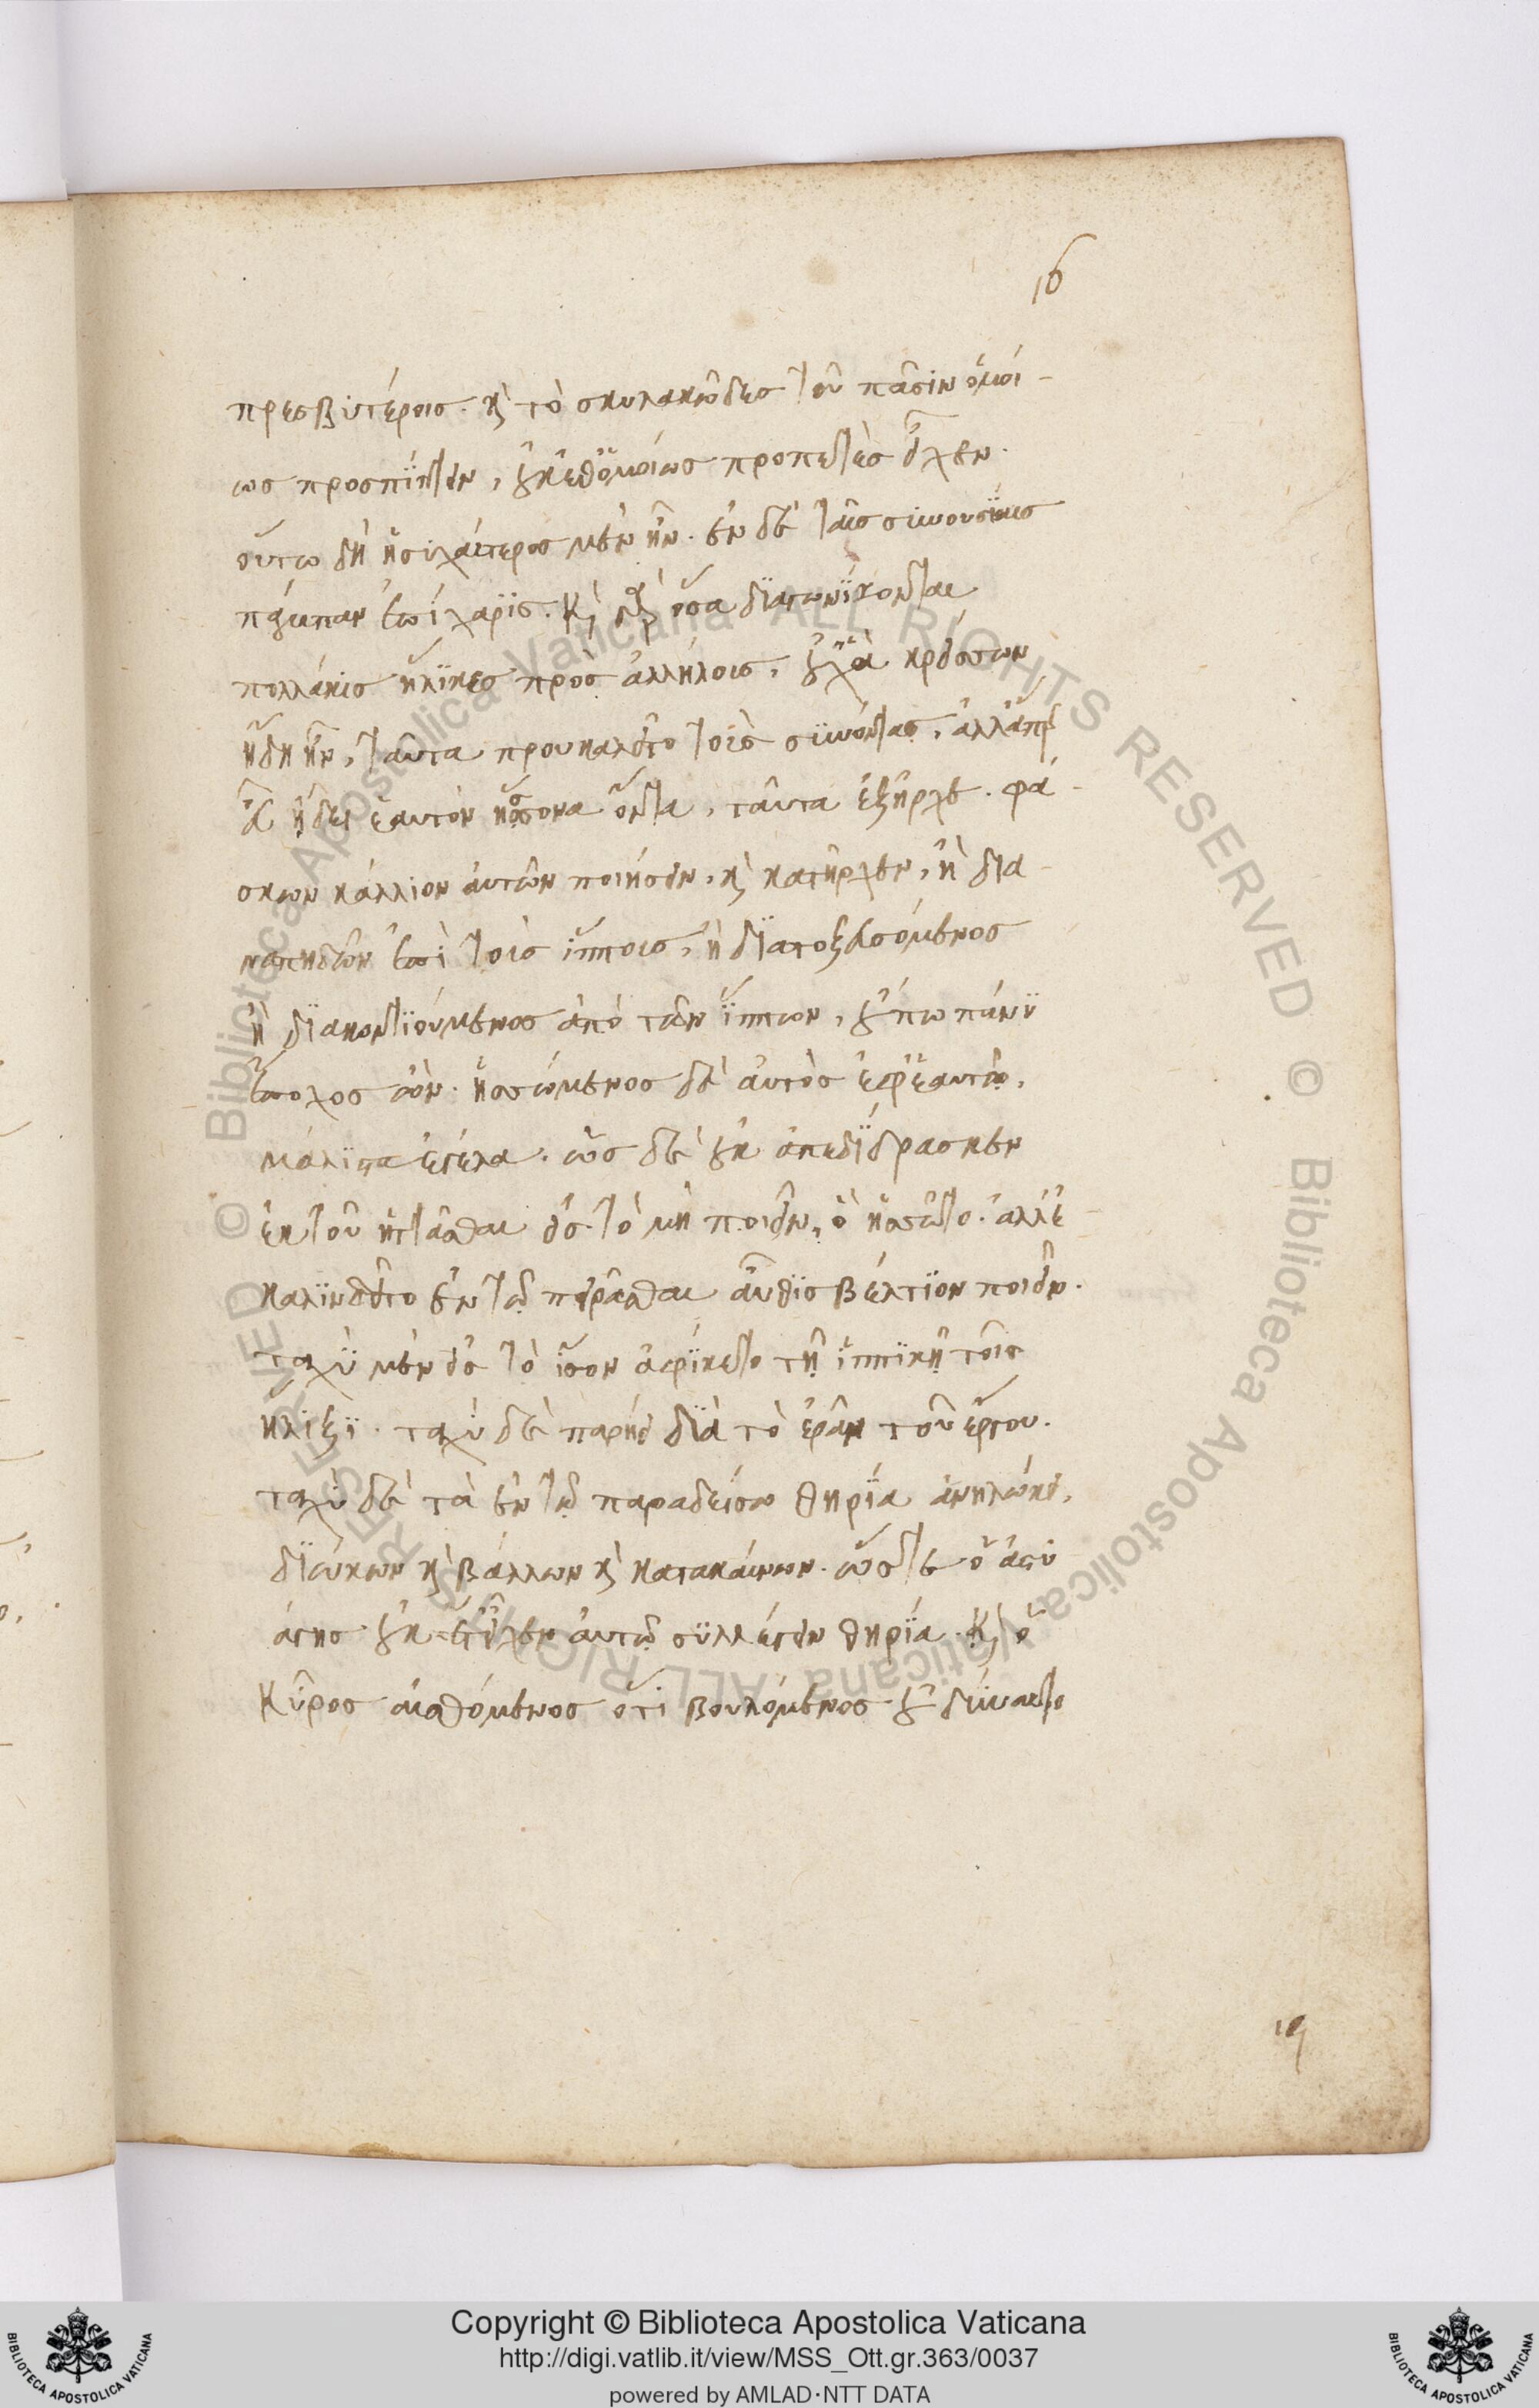 16
πρεσβυτέροις. κ̀ τὸ σκυλακῶδες τοῦ πᾶσιν ὁμοί-
ως προσπίπτειν, οὐκέθ' ὁμοίως προπετὲς εἶχεν.
οὕτω δὴ ἡσυχαίτερος μὲν ἦν. ἐν δὲ ταῖς συνουσίαις
πάμπαν ἐπίχαρις. κ̀ γὰρ ὅσα διαγωνίζονται
πολλάκις ἥλικες πρὸς ἀλλήλους, οὐχ ἃ κρείσσων
ἤδη ἦν, ταῦτα προυκαλεῖτο τοὺς συνόντας, ἀλλ' ἅπερ
εὖ ᾔδει ἑαυτὸν ἥσσονα ὄντα, ταῦτα ἐξῆρχε. φά-
σκων κάλλιον αὐτῶν ποιήσειν, κ̀ κατῆρχεν, ἢ δια-
ναπηδῶν ἐπὶ τοὺς ἵππους, ἢ διατοξευσόμενος
ἢ διακοντιούμενος ἀπὸ τῶν ἵππων, οὔπω πάνυ
ἔποχος ὤν. ἡσσώμενος δὲ αὐτὸς ἐφ' ἑαυτῶ,
μάλιστα ἐγέλα. ὡς δὲ οὐκ ἀπεδίδρασκεν
ἐκ τοῦ ἡττᾶσθαι εἰς τὸ μὴ ποιεῖν, ὃ ἡσσῶτο. ἀλλ' ἐ-
καλινδεῖτο ἐν τῶ πειρᾶσθαι αὖθις βέλτιον ποιεῖν.
ταχὺ μὲν εἰς τὸ ἴσον ἀφίκετο τῇ ἱππικῇ τοῖς
ἥλιξι. ταχὺ δὲ παρῄει διὰ τὸ ἐρᾶν τοῦ ἔργου.
ταχὺ δὲ τὰ ἐν τῶ παραδείσω θηρία ἀνηλώκει,
διώκων κ̀ βάλλων κ̀ κατακαίνων. ὥστε ὁ ἀστυ
άγης οὐκ ἔτ' εἶχεν αὐτῶ συλλέγειν θηρία. κ̀ ὁ
Κῦρος αἰσθόμενος ὅτι βουλόμενος οὐ δύναιτο
19
Copyright © Biblioteca Apostolica Vaticana
http://digi.vatlib.it/view/MSS_Ott.gr.363/0037
powered by AMLAD·NTT DATA